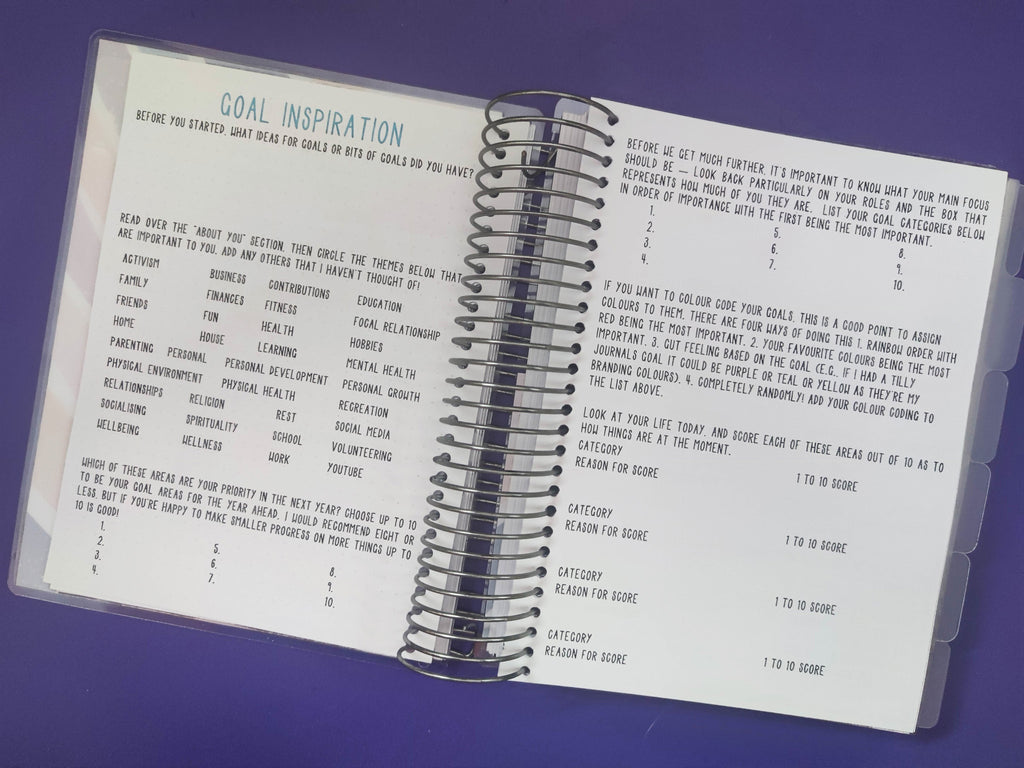 GOAL INSPIRATION
BEFORE YOU STARTED, WHAT IDEAS FOR GOALS OR BITS OF GOALS DID YOU HAVE?
READ OVER THE "ABOUT YOU" SECTION, THEN CIRCLE THE THEMES BELOW THAT
ARE IMPORTANT TO YOU. ADD ANY OTHERS THAT I HAVEN'T THOUGHT OF!
ACTIVISM BUSINESS CONTRIBUTIONS EDUCATION
FAMILY FINANCES FITNESS FOCAL RELATIONSHIP
FRIENDS FUN HEALTH HOBBIES
HOME HOUSE LEARNING MENTAL HEALTH
PARENTING PERSONAL PERSONAL DEVELOPMENT PERSONAL GROWTH
PHYSICAL ENVIRONMENT PHYSICAL HEALTH RECREATION
RELATIONSHIPS RELIGION REST SOCIAL MEDIA
SOCIALISING SPIRITUALITY SCHOOL VOLUNTEERING
WELLBEING WELLNESS WORK YOUTUBE
WHICH OF THESE AREAS ARE YOUR PRIORITY IN THE NEXT YEAR? CHOOSE UP TO 10
TO BE YOUR GOAL AREAS FOR THE YEAR AHEAD. I WOULD RECOMMEND EIGHT OR
LESS, BUT IF YOU'RE HAPPY TO MAKE SMALLER PROGRESS ON MORE THINGS UP TO
10 IS GOOD!
1.
2. 5. 8.
3. 6. 9.
4. 7. 10.
BEFORE WE GET MUCH FURTHER, IT'S IMPORTANT TO KNOW WHAT YOUR MAIN FOCUS
SHOULD BE – LOOK BACK PARTICULARLY ON YOUR ROLES AND THE BOX THAT
REPRESENTS HOW MUCH OF YOU THEY ARE. LIST YOUR GOAL CATEGORIES BELOW
IN ORDER OF IMPORTANCE WITH THE FIRST BEING THE MOST IMPORTANT.
1.
2. 5. 8.
3. 6. 9.
4. 7. 10.
IF YOU WANT TO COLOUR CODE YOUR GOALS, THIS IS A GOOD POINT TO ASSIGN
COLOURS TO THEM. THERE ARE FOUR WAYS OF DOING THIS 1. RAINBOW ORDER WITH
RED BEING THE MOST IMPORTANT. 2. YOUR FAVOURITE COLOURS BEING THE MOST
IMPORTANT. 3. GUT FEELING BASED ON THE GOAL (E.G., IF I HAD A TILLY
JOURNALS GOAL IT COULD BE PURPLE OR TEAL OR YELLOW AS THEY'RE MY
BRANDING COLOURS). 4. COMPLETELY RANDOMLY! ADD YOUR COLOUR CODING TO
THE LIST ABOVE.
LOOK AT YOUR LIFE TODAY, AND SCORE EACH OF THESE AREAS OUT OF 10 AS TO
HOW THINGS ARE AT THE MOMENT.
CATEGORY
REASON FOR SCORE 1 TO 10 SCORE
CATEGORY
REASON FOR SCORE 1 TO 10 SCORE
CATEGORY
REASON FOR SCORE 1 TO 10 SCORE
CATEGORY
REASON FOR SCORE 1 TO 10 SCORE